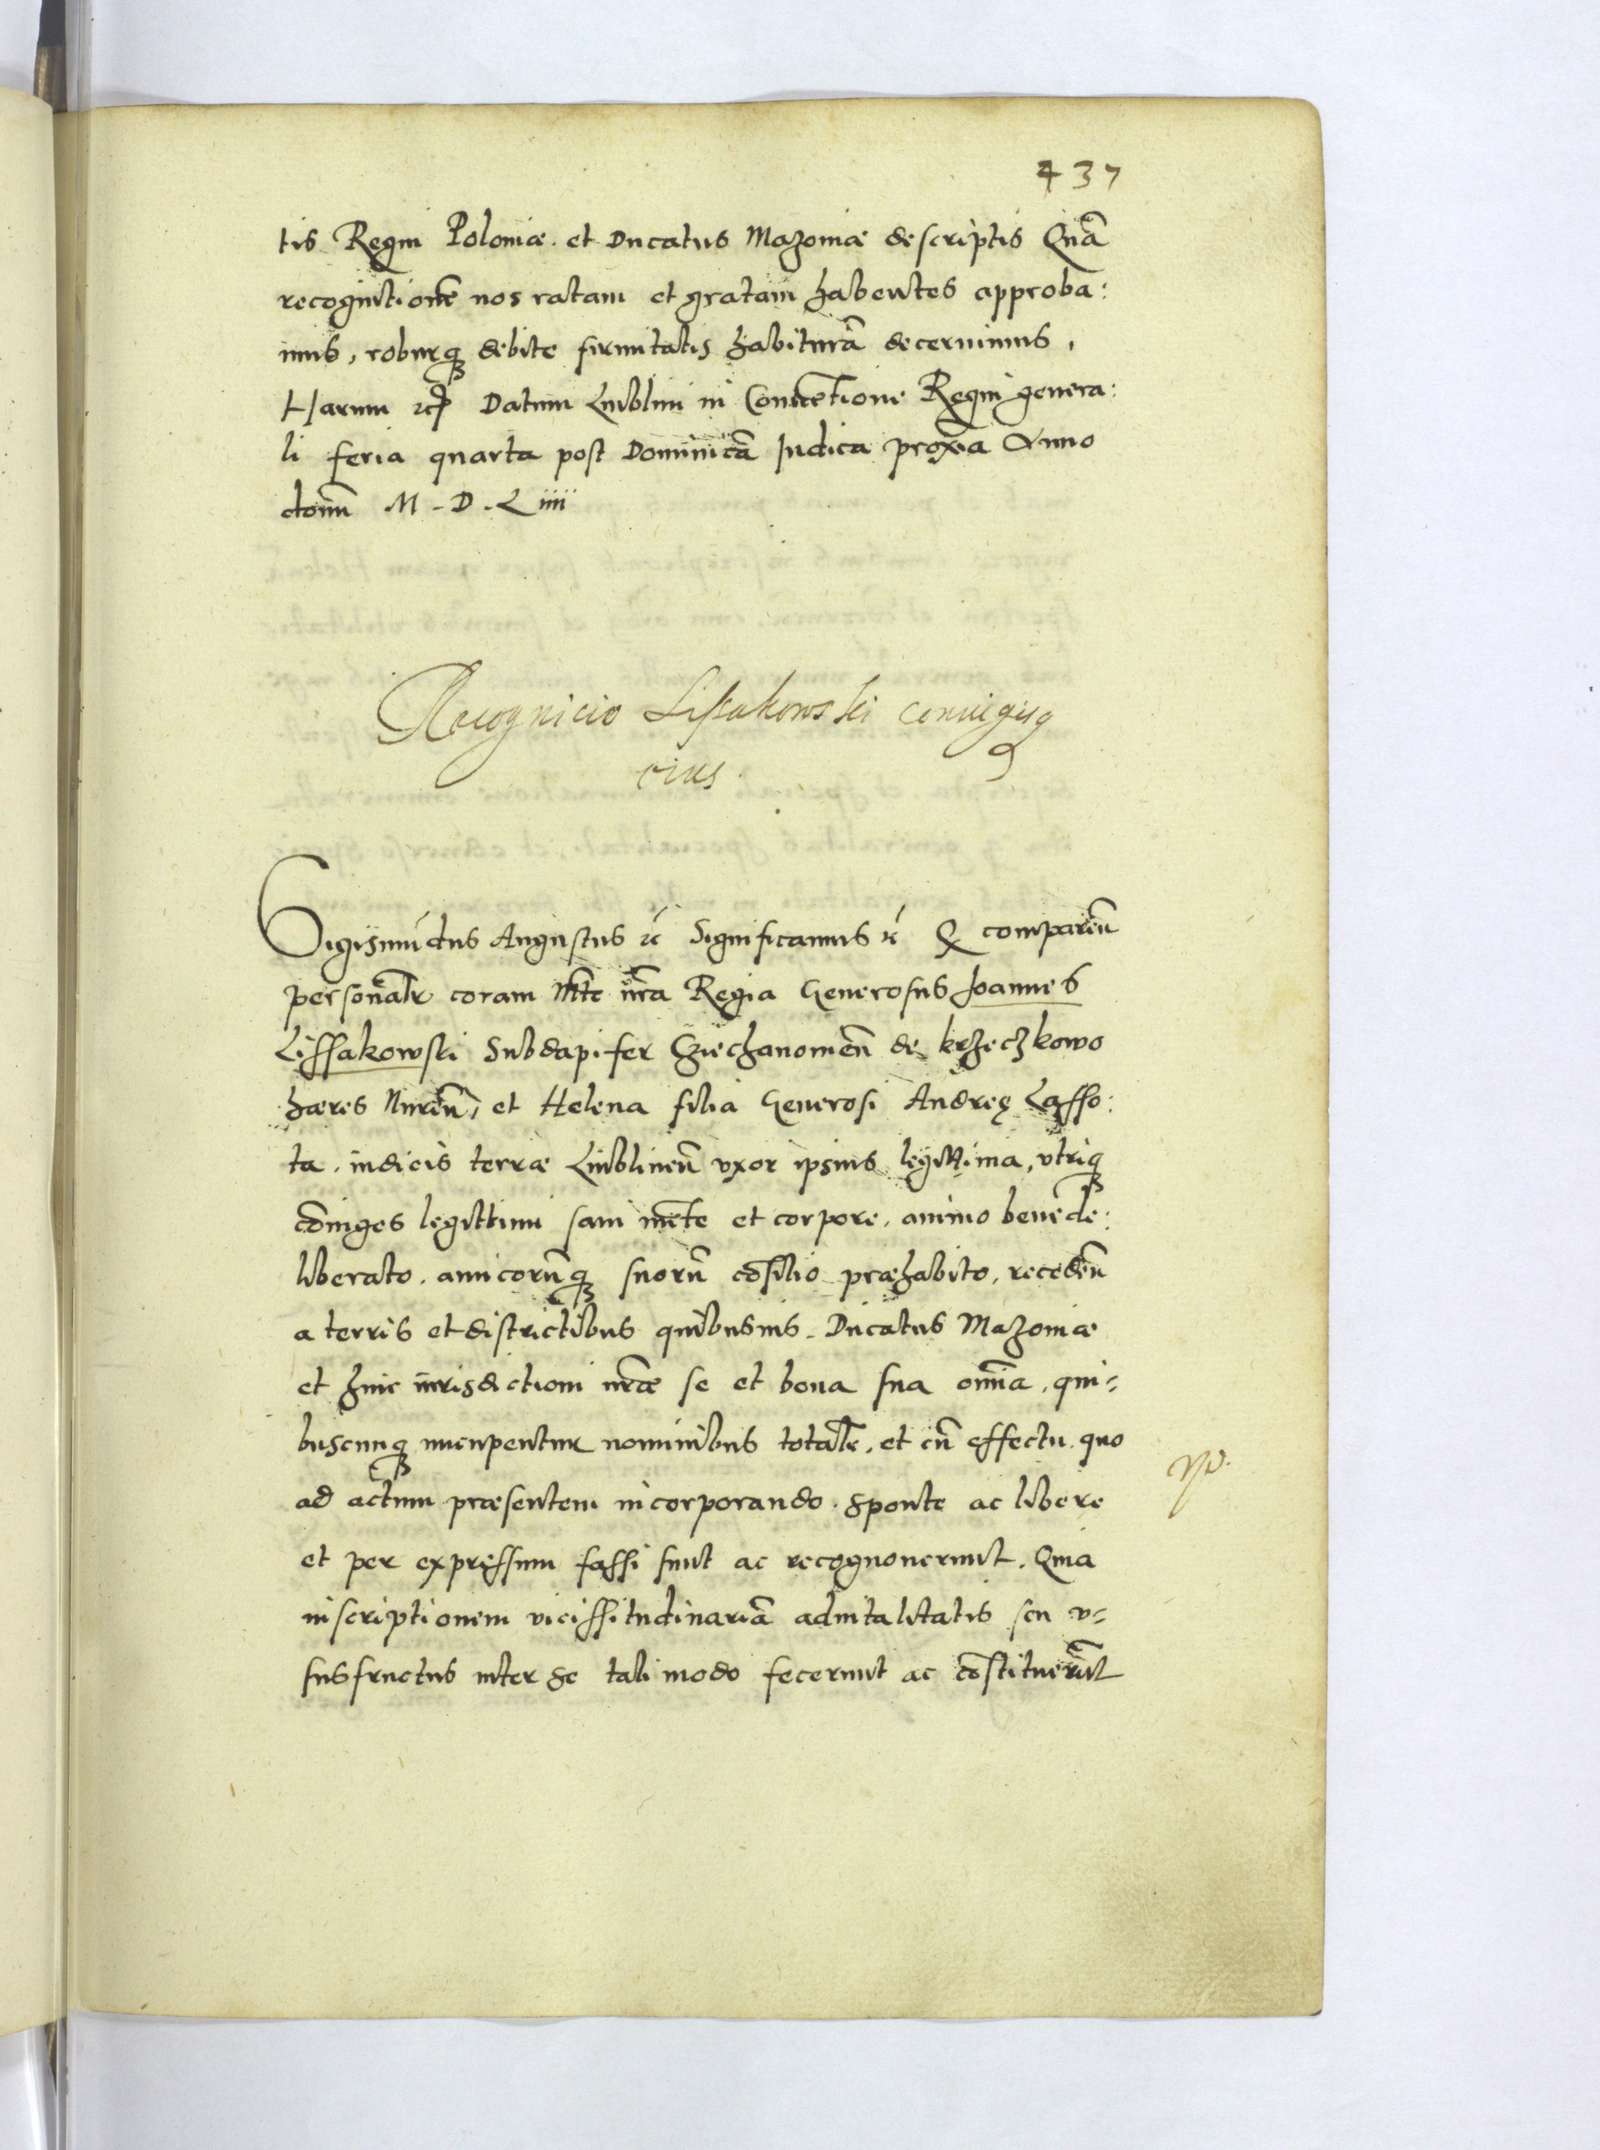 437
tis Regni Poloniæ et Ducatus Mazoviæ descriptis Quã
recognitionẽ nos ratam et gratam habentes approba:
mus, roburq₃ debite firmitatis habiturã decernimus,
Harum etc̃ Datum Lublini in Conuẽtione Regni genera:
li feria quarta post Dominicã Iudica proxĩa Anno
domĩ M. D. Liiii
Recognicio Lissakowski coniugisq₃
eius.
Sigismũdus Augustus etc̃ Significamus etc̃ Q comparen̄
personalr̃ coram Mte nr̃a Regia Generosus Joannes
Lissakowski Subdapifer Cziechanomen̄ de krzeczkowo
hæres Nuren̄, et Helena filia Generosi Andreę Lasso:
ta, iudicis terræ Lublinen̄ vxor ipsius legittima, vtriq₃
cõiuges legittimi sani mẽte et corpore, animo bene de:
liberato, amicorũq₃ suorũ cõsilio præhabito, receden̄
a terris et districtibus quibusuis Ducatus Mazoviæ
et huic iurisdictioni nr̃æ se et bona sua om̃ia, qui=
buscunq₃ nuncupentur nominibus totalr̃, et cũ effectu quo
ad actum præsentem incorporando, sponte ac libere
et per expressum fassi sunt ac recognouerunt, Quia
inscriptionem vicissitudinariã aduitalitatis seu v=
susfructus inter se tali modo fecerunt ac cõstituerũt